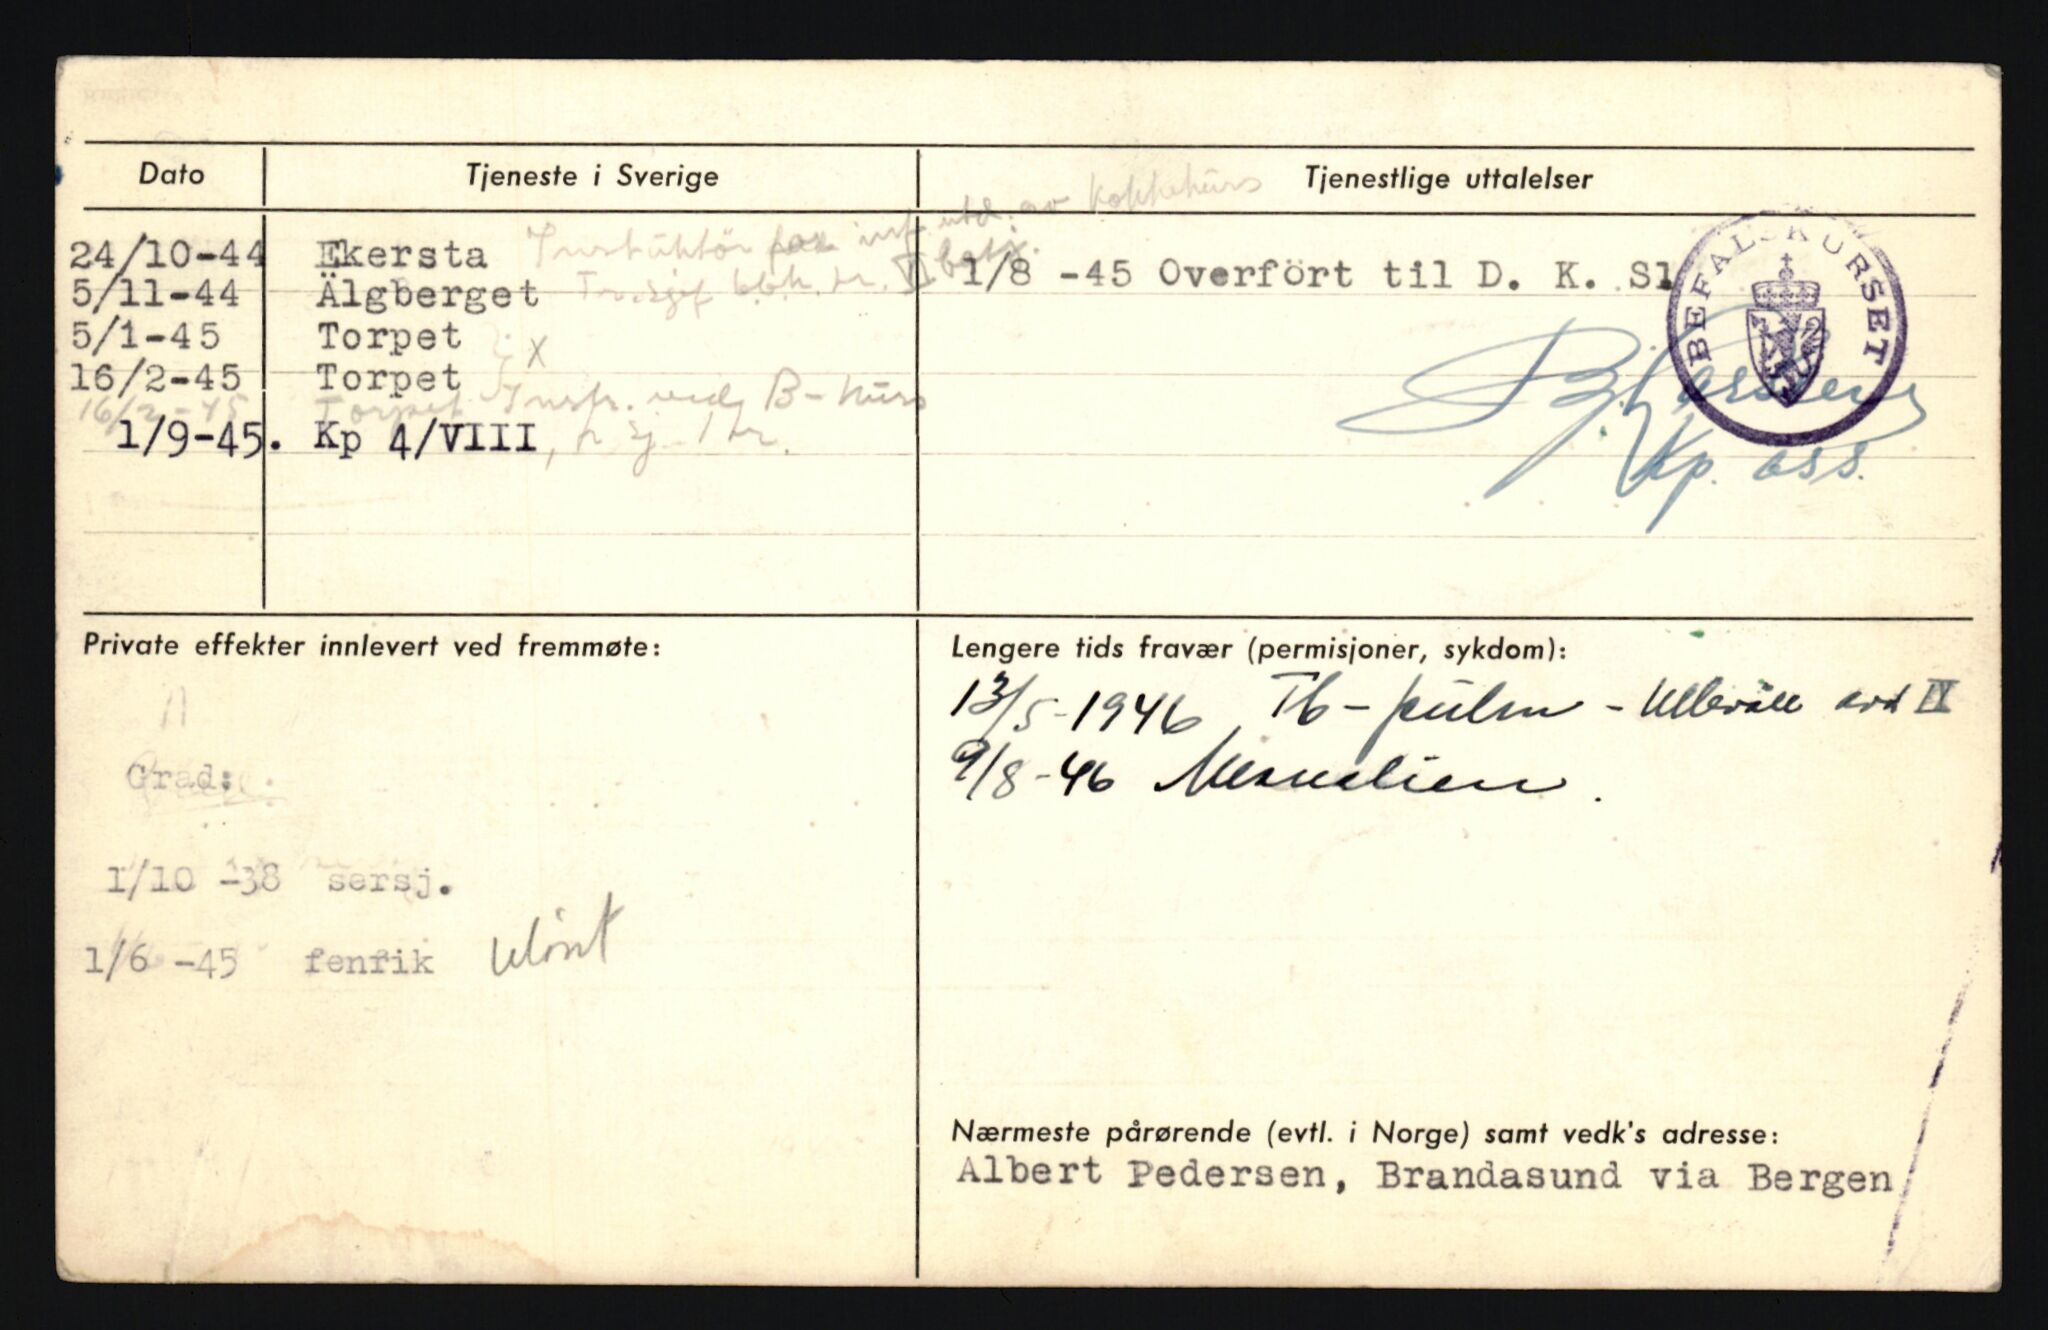 Dato Tjeneste i Sverige Tjenestlige uttalelser
24/10-44 Ekersta Instruktör for inf. utd. av Kokkekurs
5/11-44 Älgberget VI batj.
1/8 -45 Overfört til D. K. Sl
5/1-45 Torpet
x
16/2-45 Torpet
16/2-45 Torpet Instr. ved B-kurs
1/9-45. Kp 4/VIII,
BEFALSKURSET
Kp. ass.
Private effekter innlevert ved fremmøte:
Grad:
1/10 -38 sersj.
1/6 -45 fenrik
Lengere tids fravær (permisjoner, sykdom):
13/5-1946 Tb-pulm - Ullevåll avd IX
9/8-46 Mesnalien.
Nærmeste pårørende (evtl. i Norge) samt vedk's adresse:
Albert Pedersen, Brandasund via Bergen